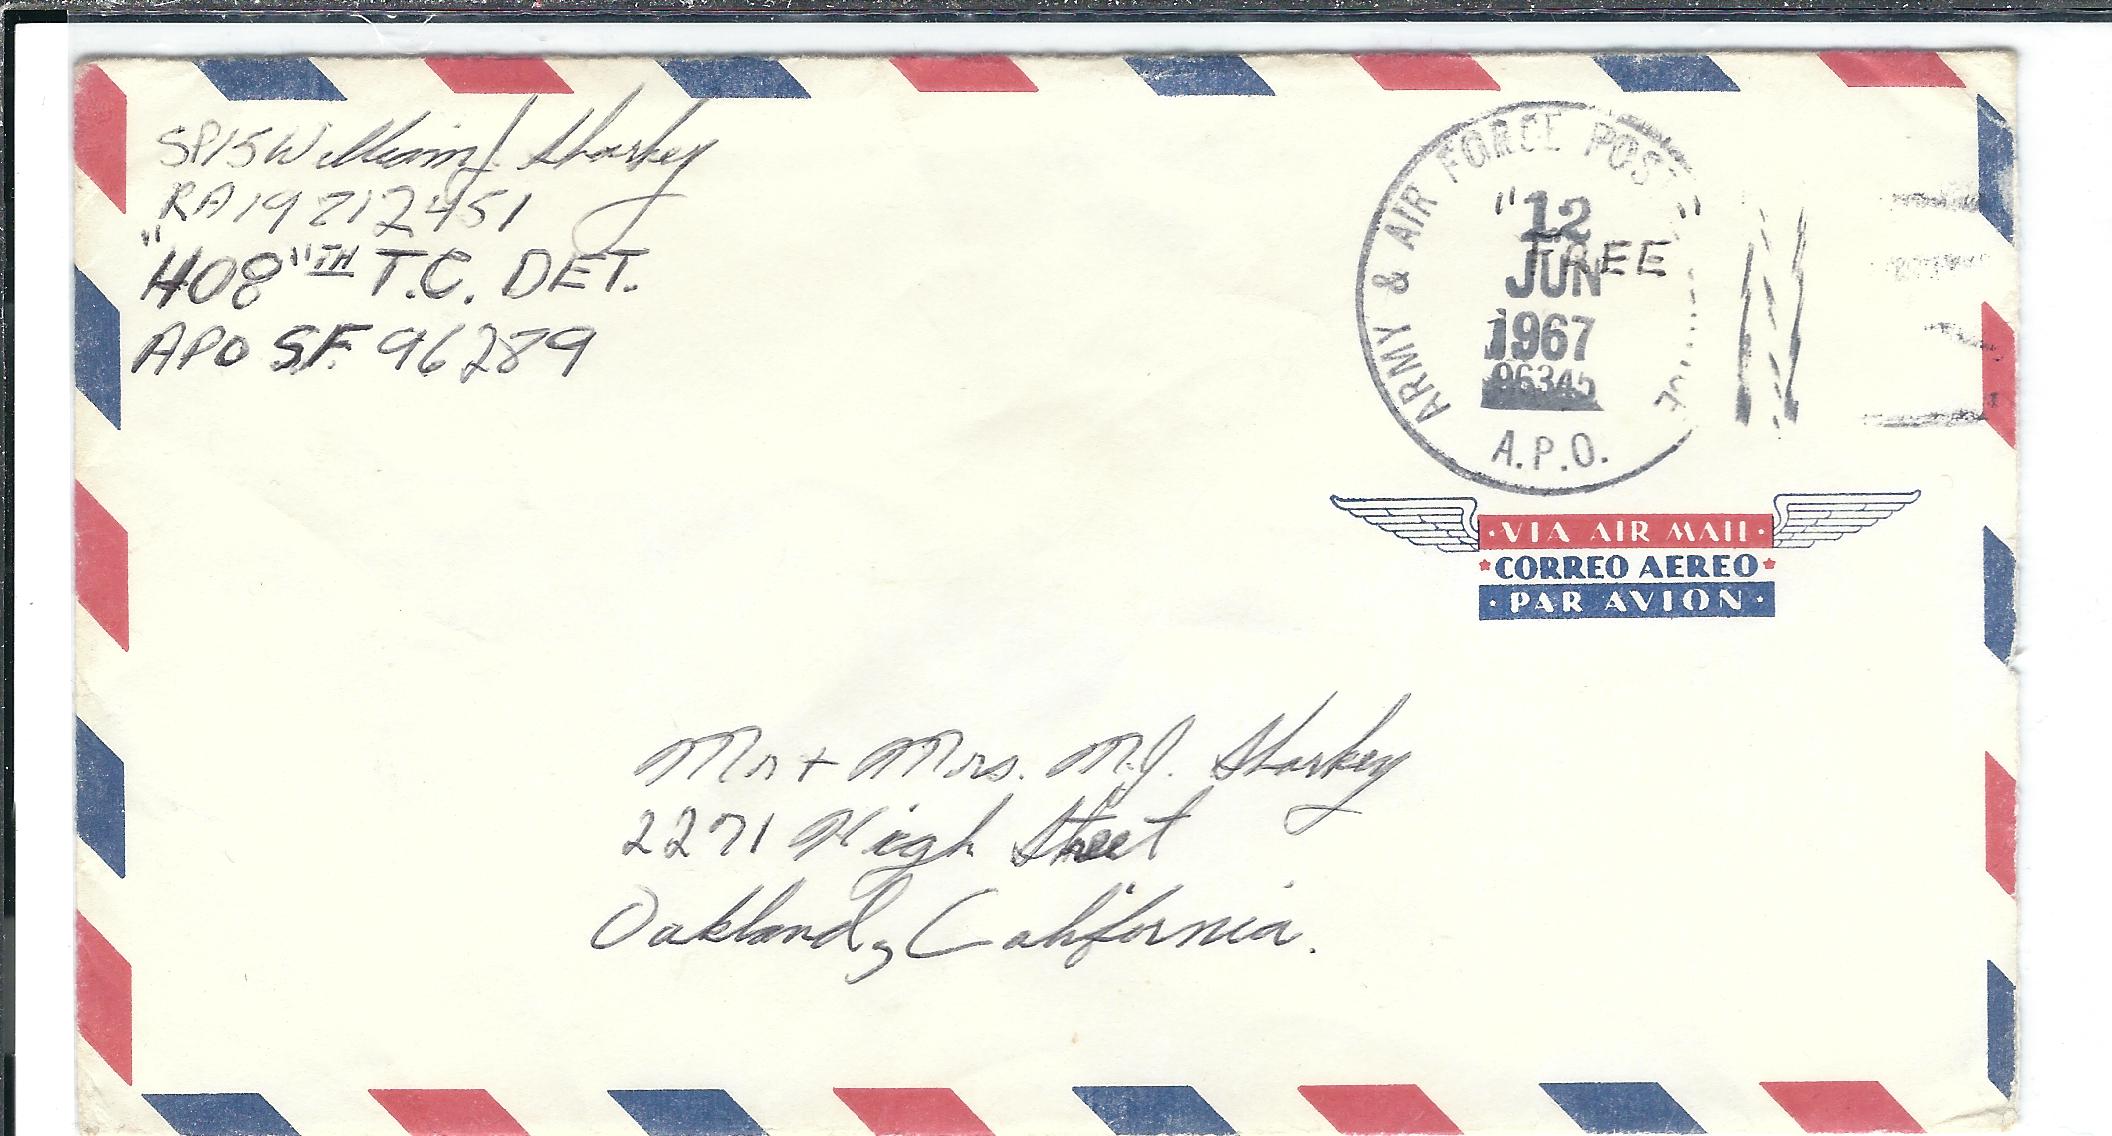 SP/5 William J. Sharkey
RA 19 212 451
"408"TH T.C. DET.
APO S.F. 96289
ARMY & AIR FORCE POSTAL SERVICE
"FREE"
12
JUN
1967
96345
A.P.O.
·VIA AIR MAIL·
*CORREO AEREO*
·PAR AVION·
Mr + Mrs. M.J. Sharkey
2271 High Street
Oakland, California.